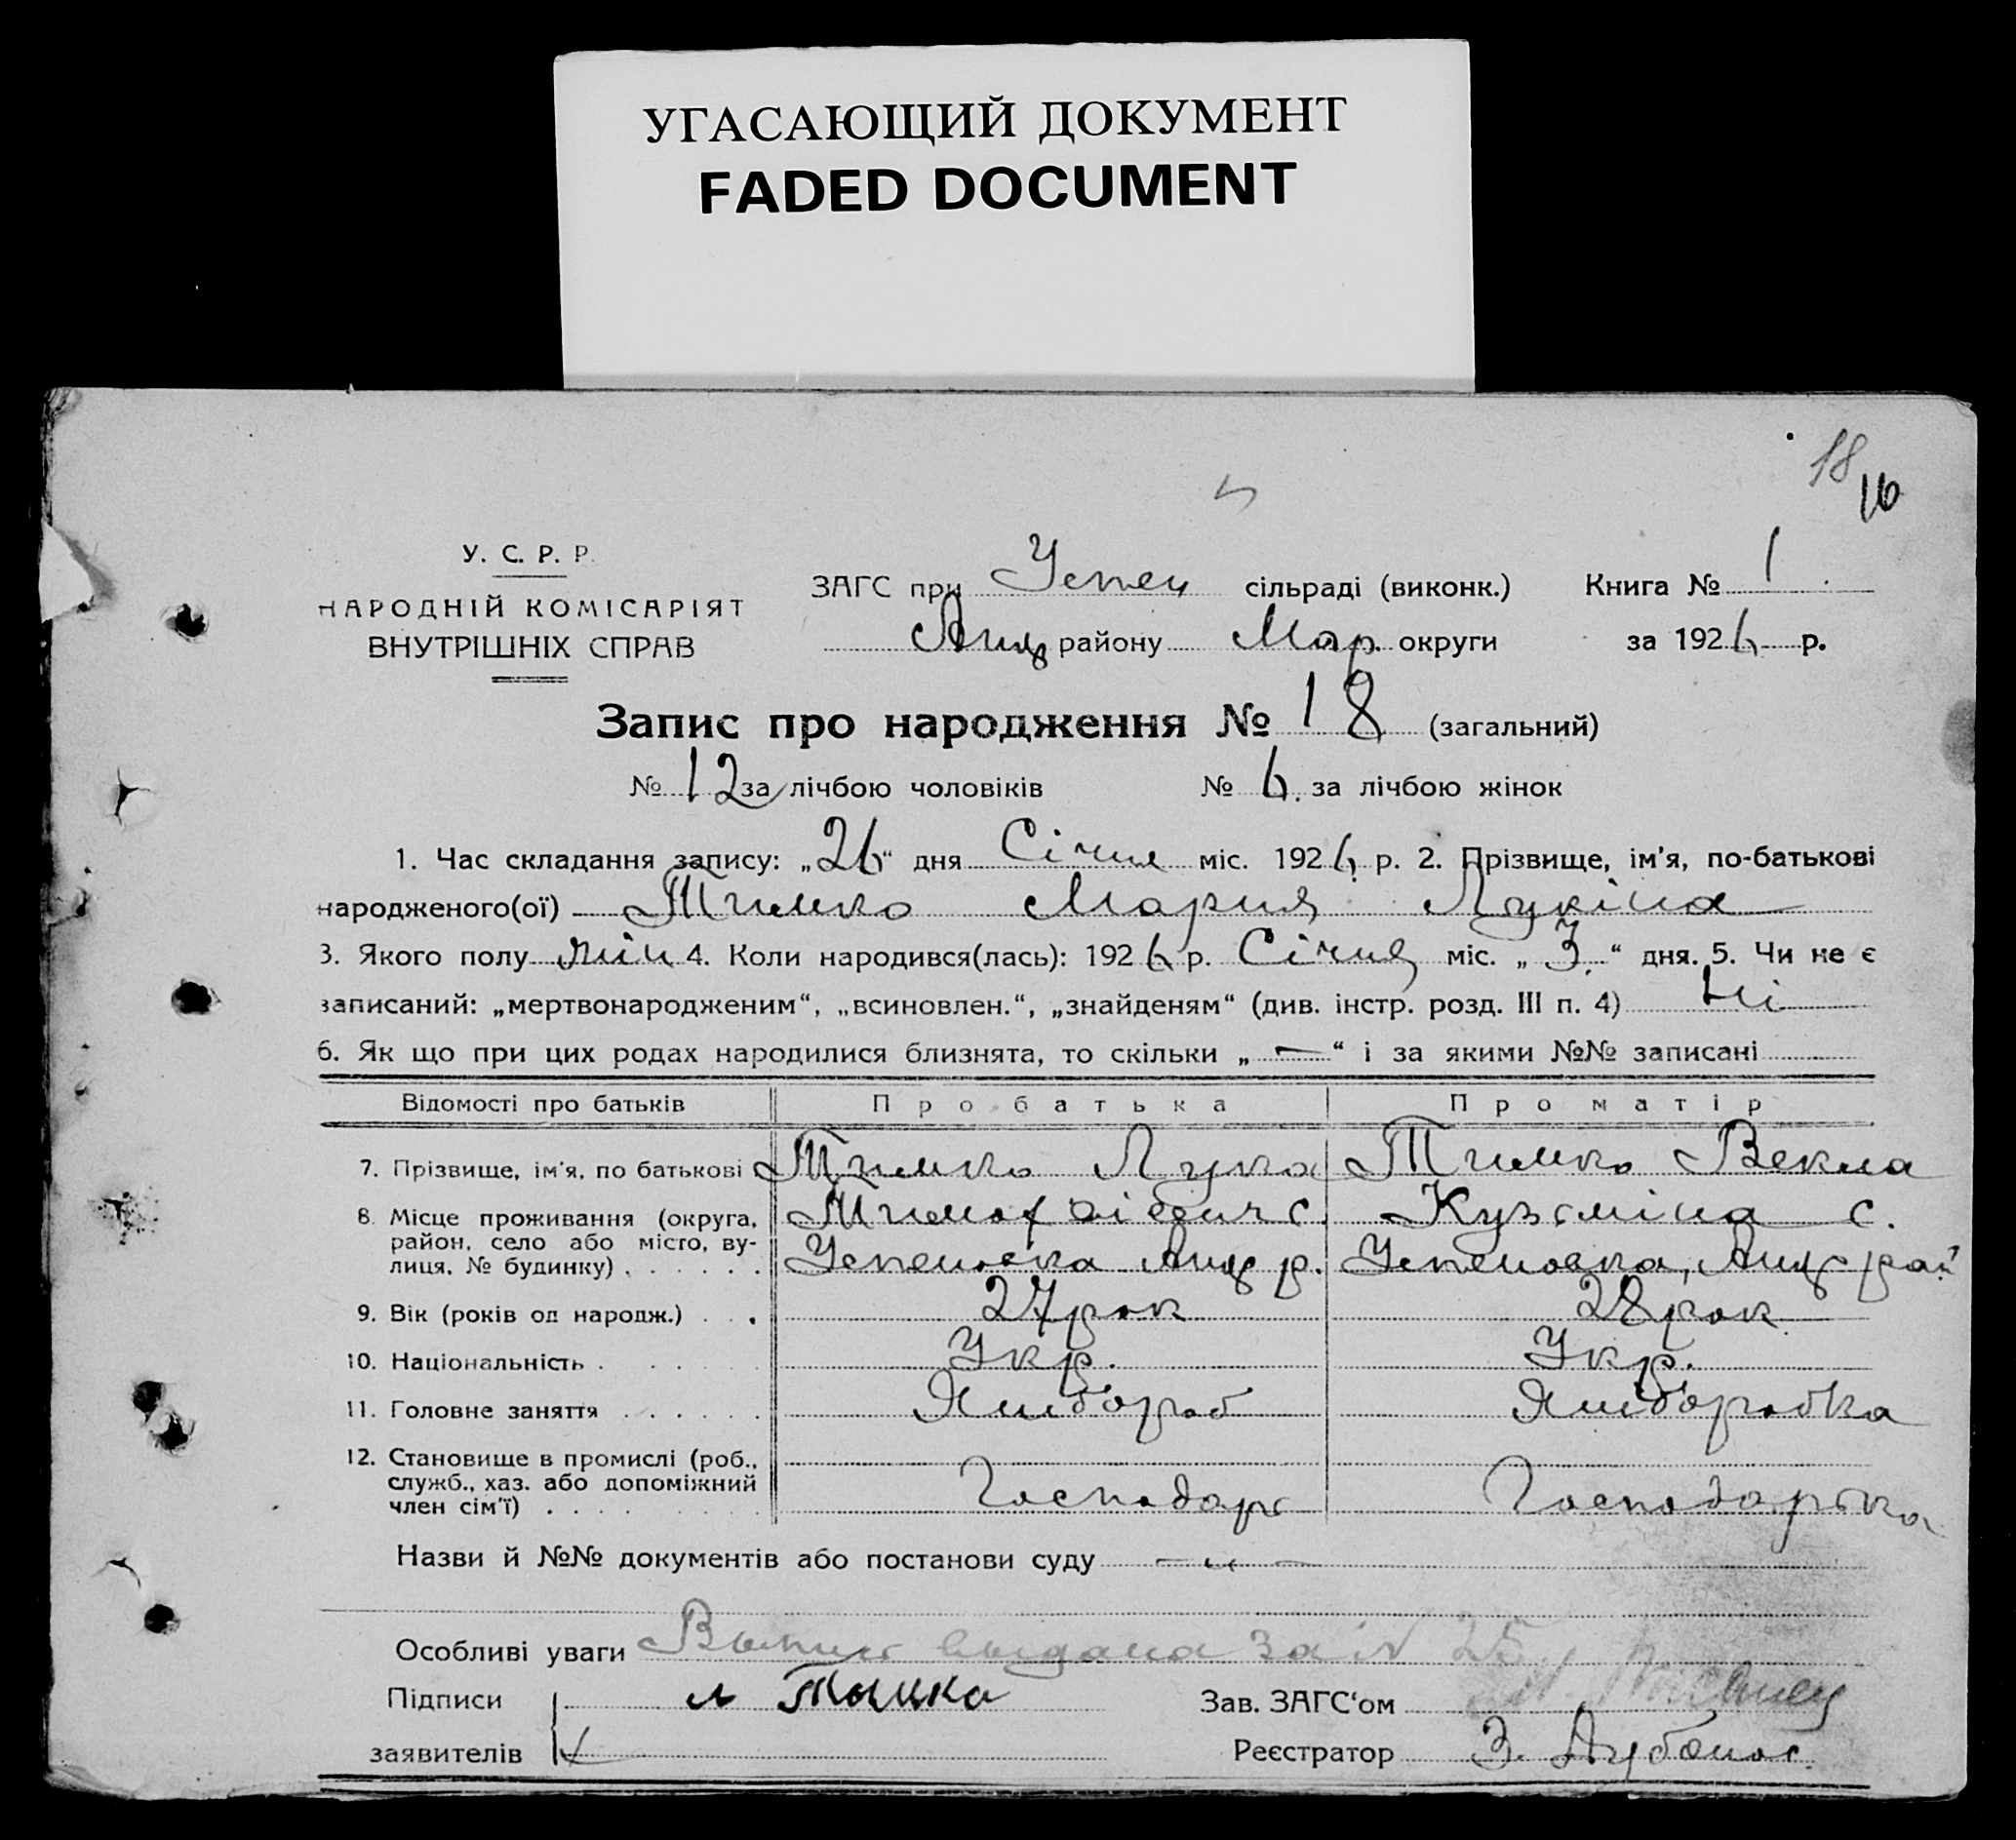 УГАСАЮЩИЙ ДОКУМЕНТ
FADED DOCUMENT
18
16
У. С. Р. Р.
НАРОДНІЙ КОМІСАРІЯТ
ВНУТРІШНІХ СПРАВ
ЗАГС при Успен сільраді (виконк.) Книга № 1
району Мар. округи за 1926 р.
Запис про народження № 18 (загальний)
№ 12 за лічбою чоловіків № 6. за лічбою жінок
1. Час складання запису: „26“ дня Січня міс. 1926 р. 2. Прізвище, ім'я, по-батькові
народженого(ої) Тимко Мария Лукіна
3. Якого полу жін 4. Коли народився(лась): 1926 р. Січня міс. „3.“ дня. 5. Чи не є
записаний: „мертвонародженим“, „всиновлен.“, „знайденям“ (див. інстр. розд. III п. 4) Ні
6. Як що при цих родах народилися близнята, то скільки „—“ і за якими №№ записані
Відомості про батьків Про батька Про матір
7. Прізвище, ім'я, по батькові Тимко Лука Тимко Векла
8. Місце проживання (округа, район, село або місто, вулиця, № будинку) Тимофіевич с. Кузьміна с.
Успеновка р. Успеновка, рай
9. Вік (років од народж.) 27 рок 28 рок
10. Національність Укр. Укр.
11. Головне заняття Хлібороб Хліборобка
12. Становище в промислі (роб., служб., хаз. або допоміжний член сім'ї) Господарь Господарька
Назви й №№ документів або постанови суду — „ —
Особливі уваги Выпис выдана за № 25
Підписи Л Тымко Зав. ЗАГС'ом
заявителів Реєстратор З.